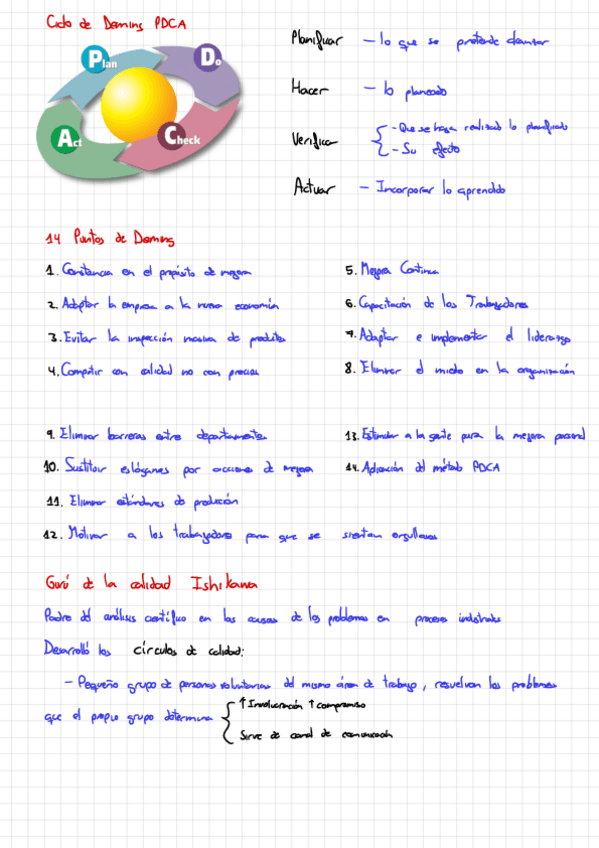 Ciclo de Deming PDCA
Plan
Do
Act
Check
Planificar — lo que se pretende alcanzar
Hacer — lo planeado
Verificar - Que se haya realizado lo planificado
- Su efecto
Actuar — Incorporar lo aprendido
14 Puntos de Deming
1. Constancia en el propósito de mejora
2. Adaptar la empresa a la nueva economía
3. Evitar la inspección masiva de productos
4. Competir con calidad no con precios
5. Mejora Continua
6. Capacitación de los Trabajadores
7. Adaptar e implementar el liderazgo
8. Eliminar el miedo en la organización
9. Eliminar barreras entre departamentos
10. Sustituir eslóganes por acciones de mejora
11. Eliminar estándares de producción
12. Motivar a los trabajadores para que se sientan orgullosos
13. Estimular a la gente para la mejora personal
14. Aplicación del método PDCA
Gurú de la calidad Ishikawa
Padre del análisis científico en las causas de los problemas en procesos industriales
Desarrolló los círculos de calidad:
— Pequeño grupo de personas voluntarias del mismo área de trabajo, resuelven los problemas
que el propio grupo determina
↑ Involucración ↑ compromiso
Sirve de canal de comunicación